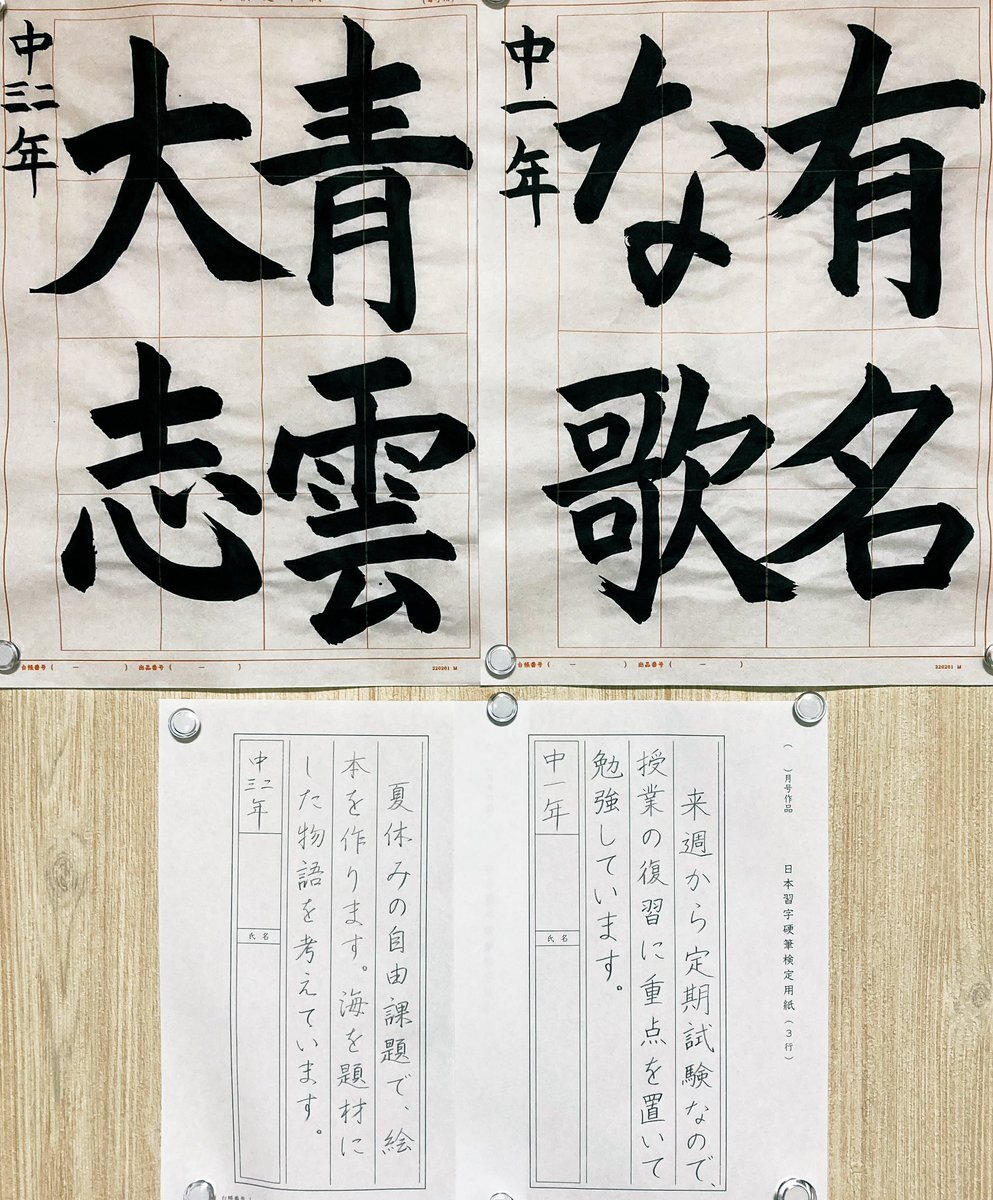 有名
な歌
中一年
台帳番号（　ー　）　出品番号（　ー　）　220201 M
青雲
大志
中三二年
台帳番号（　ー　）　出品番号（　ー　）　220201 M
（　）月号作品　日本習字硬筆検定用紙（３行）
来週から定期試験なので、
授業の復習に重点を置いて
勉強しています。
中一年
氏名
夏休みの自由課題で、絵
本を作ります。海を題材に
した物語を考えています。
中三二年
氏名